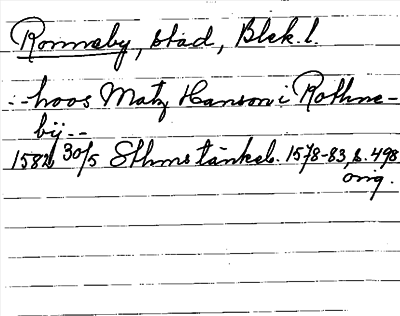 Ronneby, stad, Blek. l.
--hoos Matz Hanson i Rothne-
bÿ--
1582 30/5 Sthms tänkeb. 1578-83, s. 498
orig.